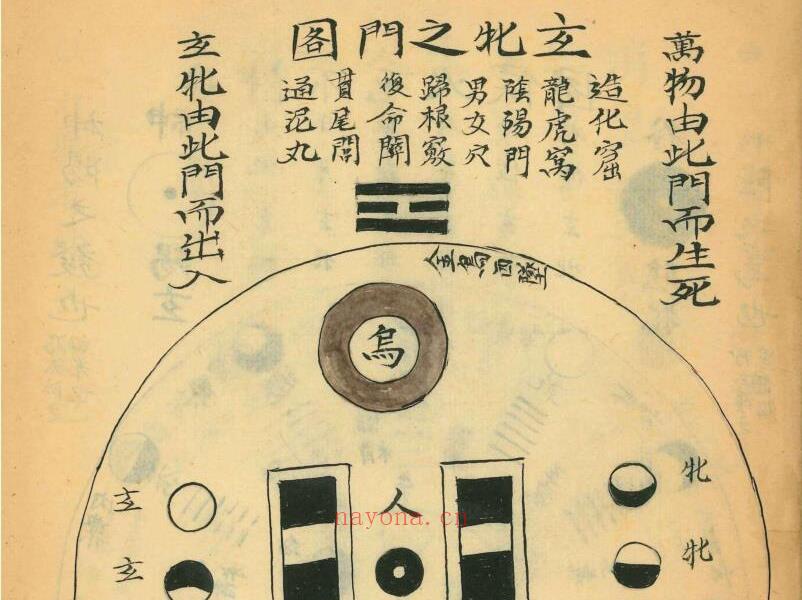 玄牝之門圖
萬物由此門而生死
造化窟
龍虎窩
陰陽門
男女穴
歸根竅
復命關
貫尾閭
通泥丸
玄牝由此門而出入
金烏西墜
烏
玄
人
牝
玄
牝
nayona.cn